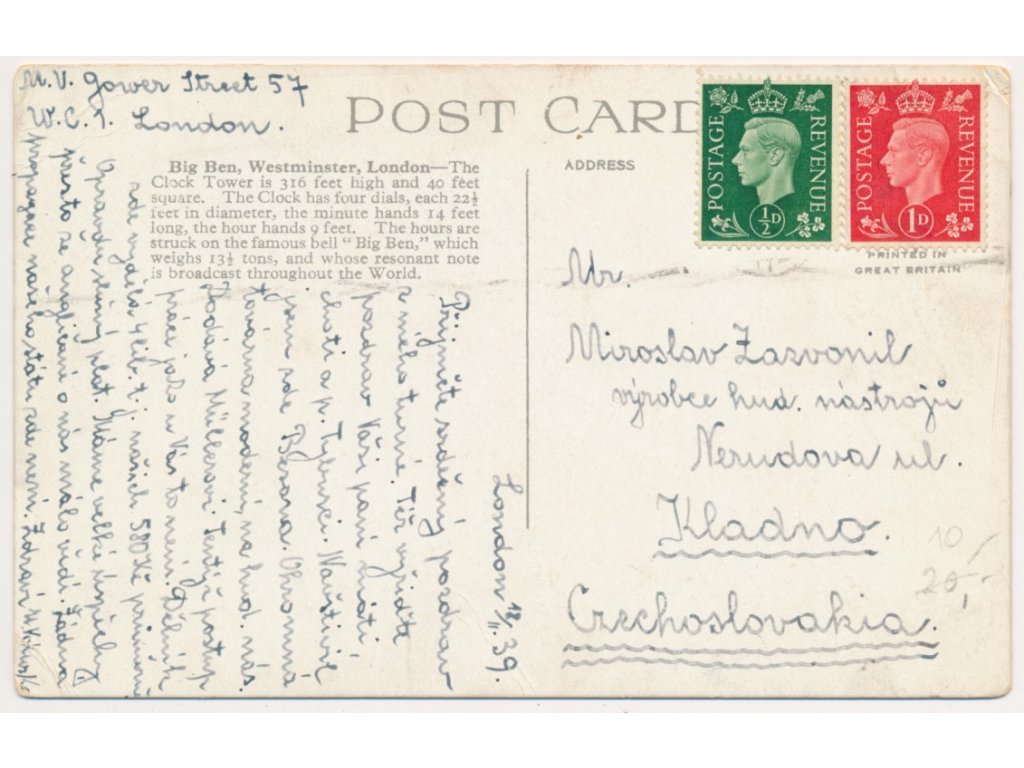 M.V. Gower Street 57
W.C.1. London.
POST CARD
Big Ben, Westminster, London—The
Clock Tower is 316 feet high and 40 feet
square. The Clock has four dials, each 22½
feet in diameter, the minute hands 14 feet
long, the hour hands 9 feet. The hours are
struck on the famous bell "Big Ben," which
weighs 13½ tons, and whose resonant note
is broadcast throughout the World.
London 18/II.39.
Přijměte srdečný pozdrav
z mého turné. Též vyřiďte
pozdrav Vaší paní choti
a p. Navštívil
jsem zde Besona. Ohromná
továrna moderní, na hud. nás.
Dodává Müllerovi. Tentýž postup
práci jako u Vás to není. Dělník
zde vydělá 4 lib. t.j. našich 580 Kč průměrně
Opravdu slušný plat. Máme velké úspěchy
přesto že angličani o nás málo vědí. Žádná
propagace našeho státu zde není. Zdraví
ADDRESS
POSTAGE REVENUE
½D
POSTAGE REVENUE
1D
PRINTED IN
GREAT BRITAIN
Mr.
Miroslav Zazvonil
výrobce hud. nástrojů
Nerudova ul.
Kladno.
Czechoslovakia.
10
20,-